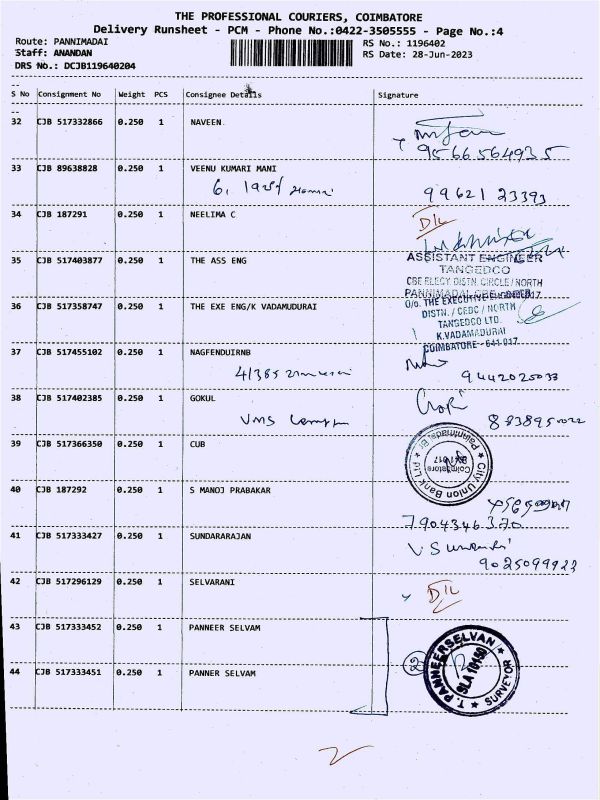 THE PROFESSIONAL COURIERS, COIMBATORE
Delivery Runsheet - PCM - Phone No.:0422-3505555 - Page No.:4
Route: PANNIMADAI
RS No.: 1196402
Staff: ANANDAN
RS Date: 28-Jun-2023
DRS No.: DCJB119640204
S No Consignment No Weight PCS Consignee Details Signature
32 CJB 517332866 0.250 1 NAVEEN.
9566564935
33 CJB 89638828 0.250 1 VEENU KUMARI MANI
99621 23393
34 CJB 187291 0.250 1 NEELIMA C
D/L
35 CJB 517403877 0.250 1 THE ASS ENG
ASSISTANT ENGINEER
TANGEDCO
CBE ELECY DISTN. CIRCLE / NORTH
36 CJB 517358747 0.250 1 THE EXE ENG/K VADAMUDURAI
O/o. THE EXECUTIVE
DISTN. / CEDC / NORTH
TANGEDCO LTD.
K.VADAMADURAI
COIMBATORE - 641 017
37 CJB 517455102 0.250 1 NAGFENDUIRNB
9442025033
38 CJB 517402385 0.250 1 GOKUL
Gopi
VMS
39 CJB 517366350 0.250 1 CUB
City Union Bank
Coimbatore
40 CJB 187292 0.250 1 S MANOJ PRABAKAR
7904346370
41 CJB 517333427 0.250 1 SUNDARARAJAN
42 CJB 517296129 0.250 1 SELVARANI
D/L
43 CJB 517333452 0.250 1 PANNEER SELVAM
2
T. PANNEERSELVAN
SURVEYOR
44 CJB 517333451 0.250 1 PANNER SELVAM